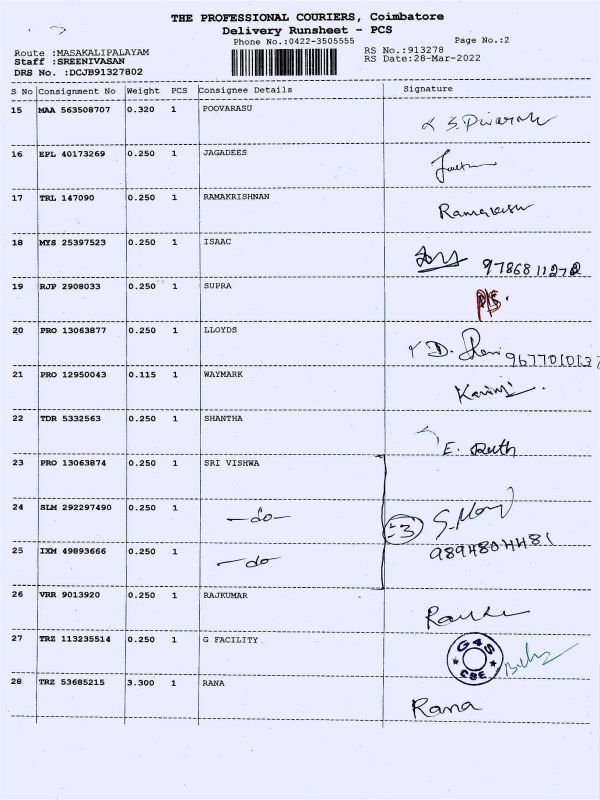 THE PROFESSIONAL COURIERS, Coimbatore
Delivery Runsheet - PCS
Phone No.:0422-3505555
Page No.:2
Route :MASAKALIPALAYAM
RS No.:913278
Staff :SREENIVASAN
RS Date:28-Mar-2022
DRS No. :DCJB91327802
S No Consignment No Weight PCS Consignee Details Signature
15 MAA 563508707 0.320 1 POOVARASU
16 EPL 40173269 0.250 1 JAGADEES
17 TRL 147090 0.250 1 RAMAKRISHNAN
18 MYS 25397523 0.250 1 ISAAC
9786811272
19 RJP 2908033 0.250 1 SUPRA
20 PRO 13063877 0.250 1 LLOYDS
D.
21 PRO 12950043 0.115 1 WAYMARK
22 TDR 5332563 0.250 1 SHANTHA
E. Ruth
23 PRO 13063874 0.250 1 SRI VISHWA
24 SLM 292297490 0.250 1 -do-
=3
25 IXM 49893666 0.250 1 -do
9894804481
26 VRR 9013920 0.250 1 RAJKUMAR
27 TRZ 113235514 0.250 1 G FACILITY
G4S
CBE
28 TRZ 53685215 3.300 1 RANA
Rana